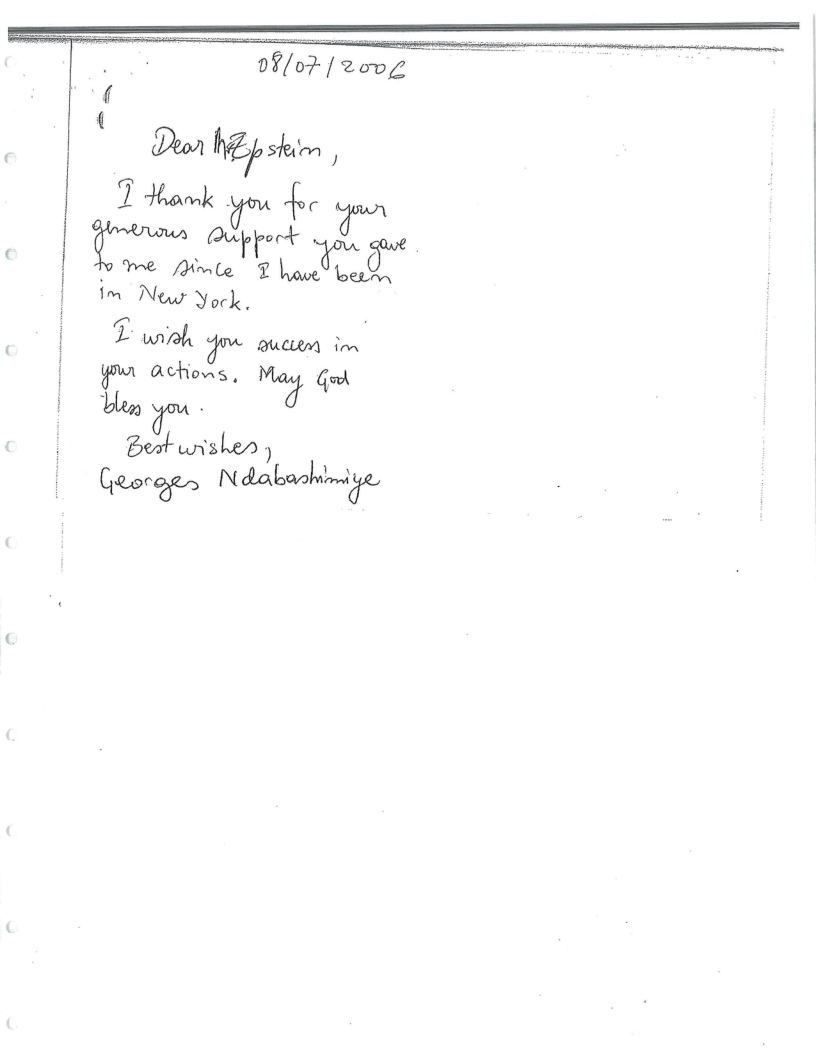 08/07/2006
Dear Mr Epstein,
I thank you for your
generous support you gave
to me since I have been
in New York.
I wish you success in
your actions. May God
bless you.
Best wishes,
Georges Ndabashimiye